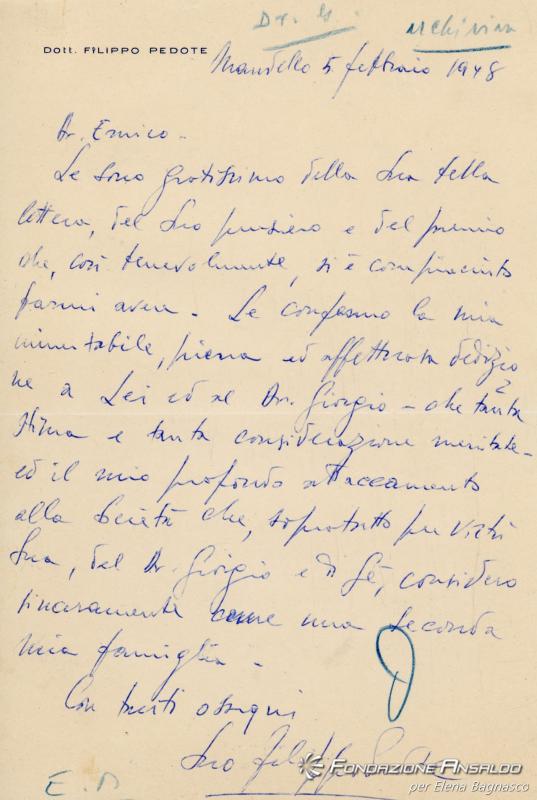 Dr. G. archiviare
Dott. FILIPPO PEDOTE
Mandello 5 febbraio 1948
Dr. Enrico -
Le sono gratissimo della Sua bella
lettera, del Suo pensiero e del premio
che, così benevolmente, si è compiaciuto
farmi avere - Le confermo la mia
immutabile, piena ed affettuosa dedizio
ne a Lei ed al Dr. Giorgio - che tanta
stima e tanta considerazione meritate -
ed il mio profondo attaccamento
alla Società che, soprattutto per virtù
Sua, del Dr. Giorgio e di Gè, considero
sinceramente come una seconda
mia famiglia -
Con tanti ossequi
Suo Filippo Pedote
E. P.
FONDAZIONE ANSALDO
per Elena Bagnasco